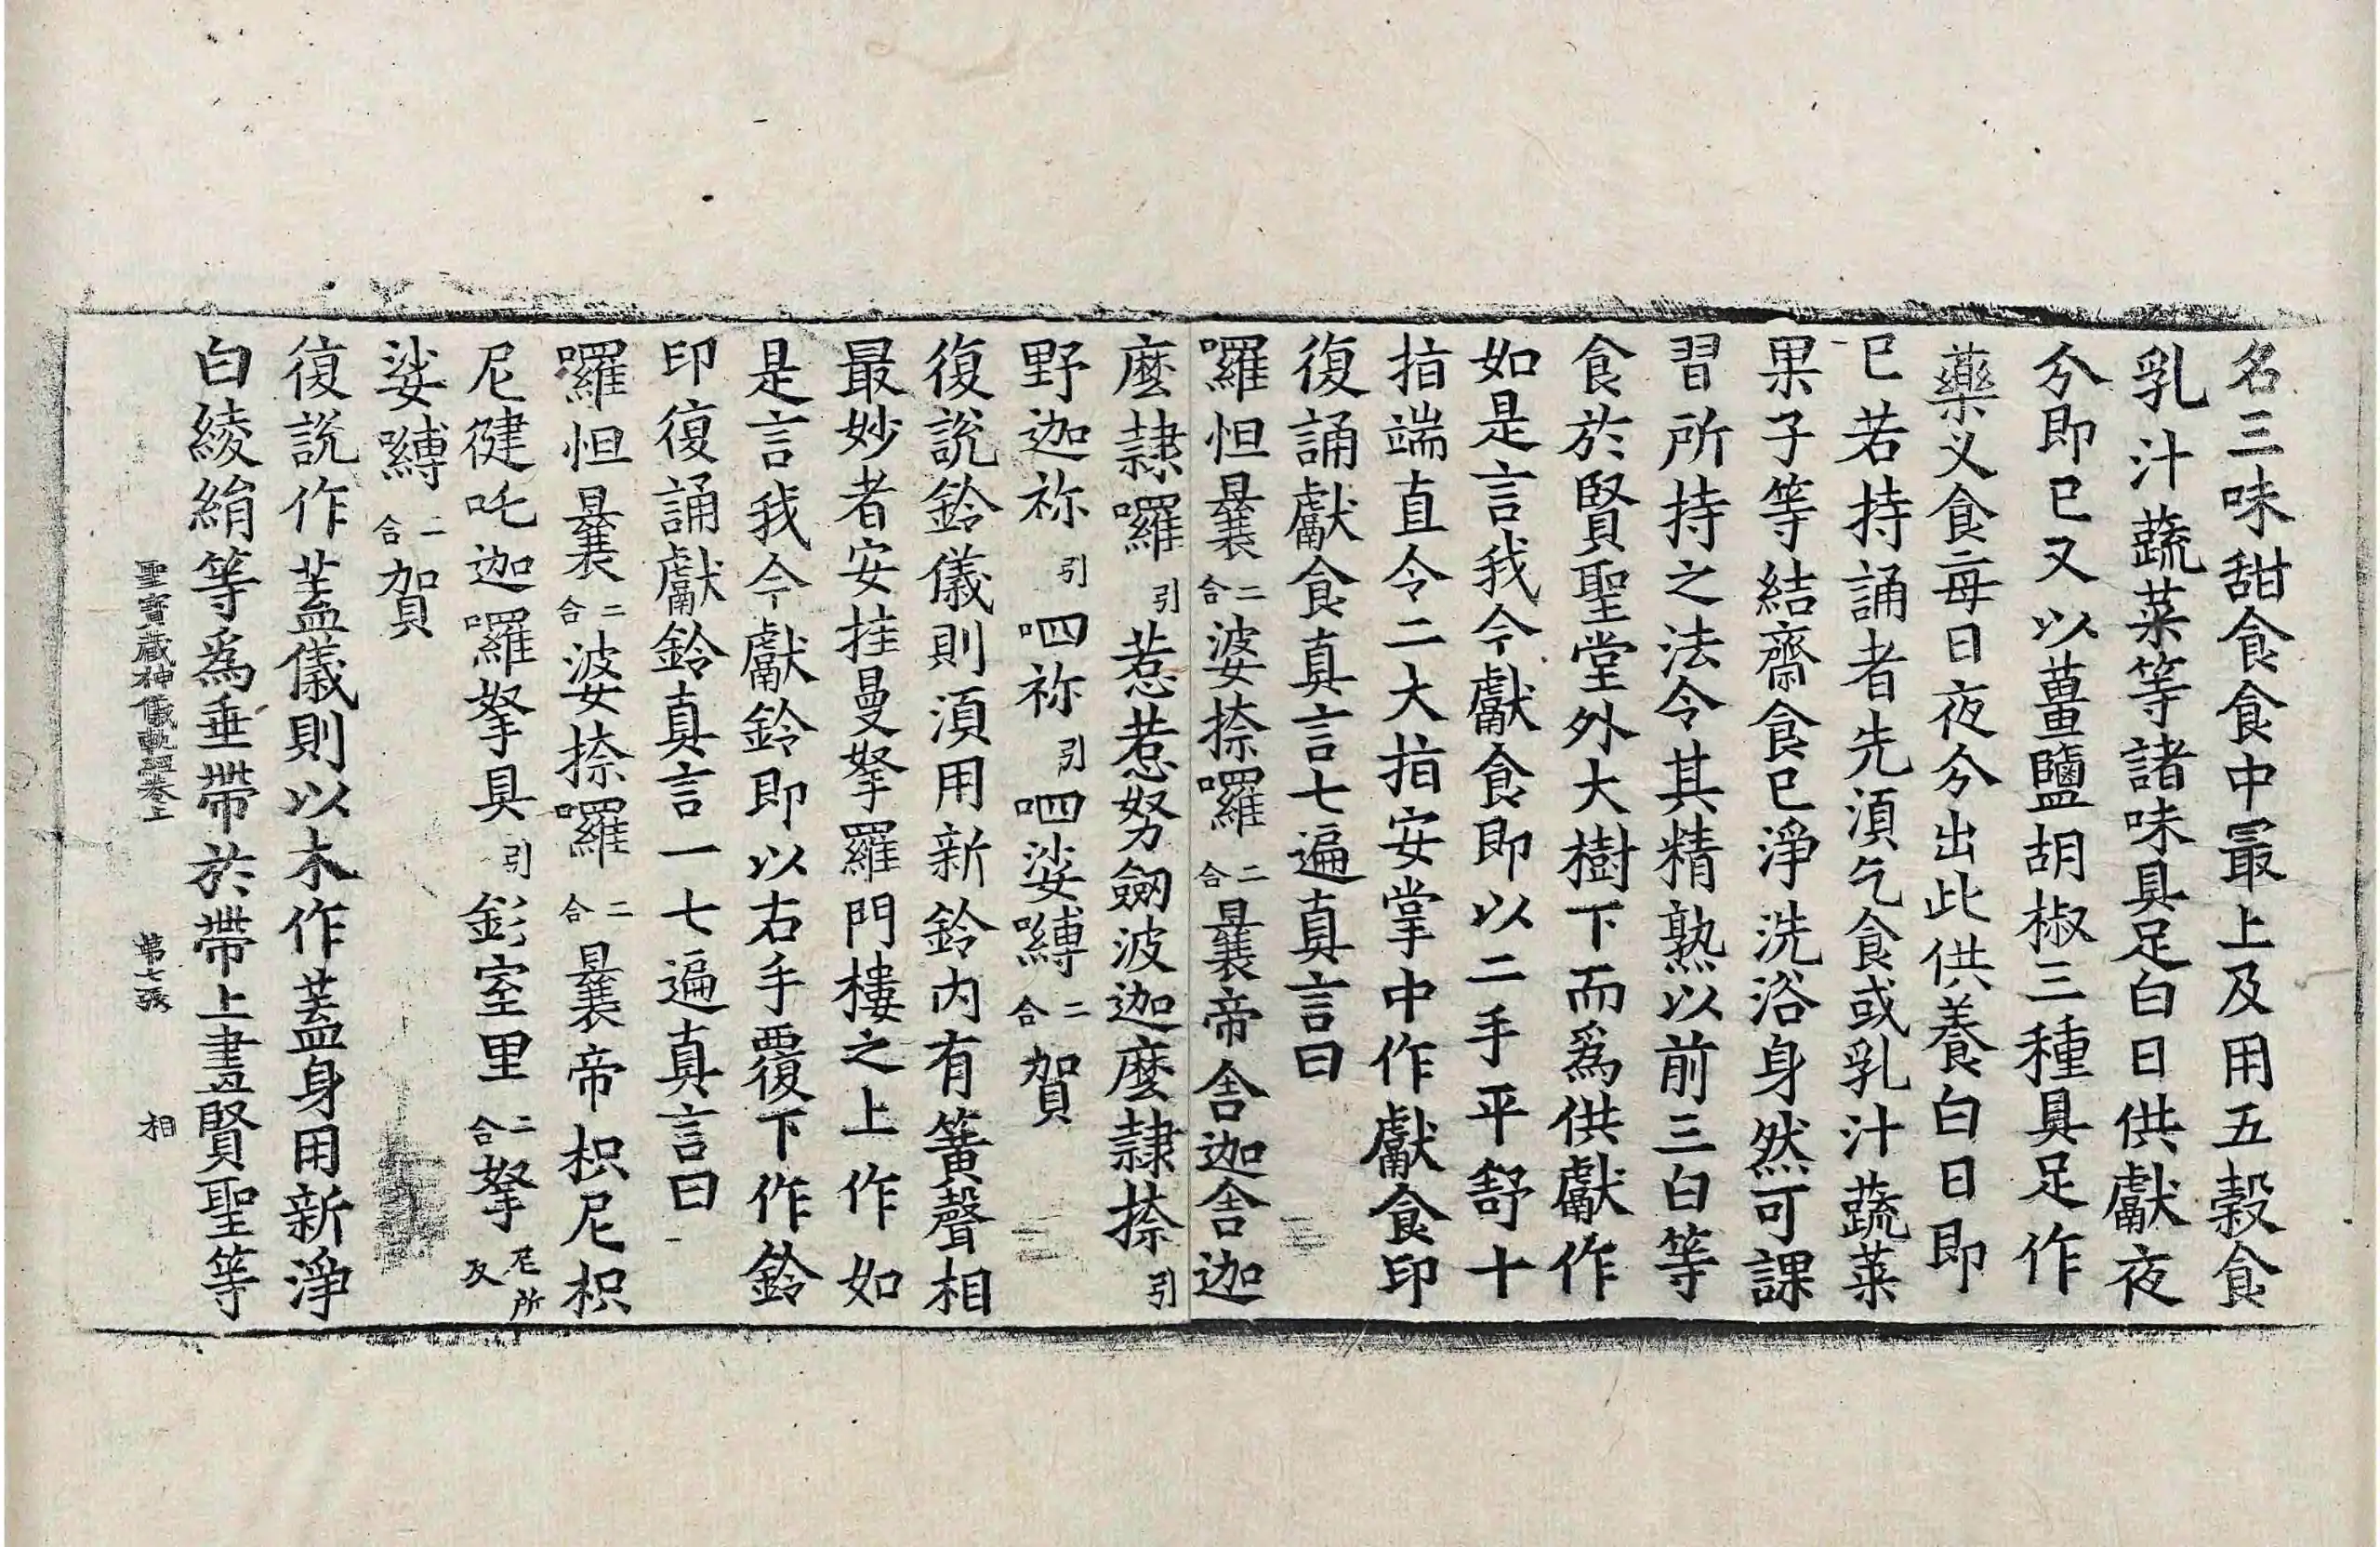 名三味甜食食中最上及用五穀食
乳汁蔬菜等諸味具足白日供獻夜
分即巳又以薑鹽胡椒三種具足作
藥义食每日夜分出此供養白日即
巳若持誦者先湏乞食或乳汁蔬菜
果子等結齋食巳淨洗浴身然可課
習所持之法令其精熟以前三白等
食於賢聖堂外大樹下而爲供獻作
如是言我今獻食即以二手平舒十
指端直令二大指安掌中作獻食印
復誦獻食真言七遍真言曰
囉怛曩二合婆捺囉二合曩帝舍迦舍迦
麼隷囉引惹惹努劒波迦麼隷捺引
野迦祢引呬祢引呬娑嚩二合賀
復説鈴儀則湏用新鈴内有簧聲相
最妙者安挂曼拏羅門樓之上作如
是言我今獻鈴即以右手覆下作鈴
印復誦獻鈴真言一七遍真言曰
囉怛曩二合婆捺囉二合曩帝枳尼枳
尼健吒迦囉拏具引室里二合拏尼所及
娑嚩二合賀
復説作盖儀則以木作盖身用新淨
白綾絹等爲垂帶於帶上畫賢聖等
聖寶藏神儀軌經卷上 第七張 相